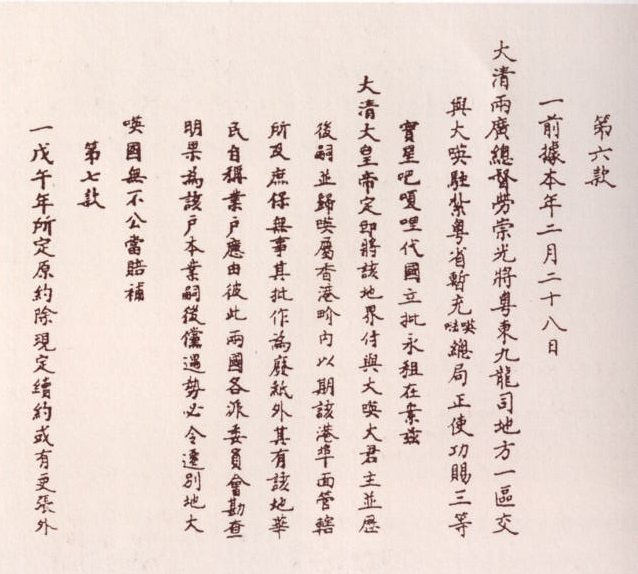 第六款
一前據本年二月二十八日
大清兩廣總督勞崇光將粵東九龍司地方一區交
與大㗸駐紮粵省暫充㗸㘓總局正使功賜三等
寶星吧嗄哩代國立批永租在案茲
大清大皇帝定即將該地界付與大㗸大君主並歷
後嗣並歸㗸屬香港界內以期該港埠面管轄
所及庶保無事其批作為廢紙外其有該地華
民自稱業戶應由彼此兩國各派委員會勘查
明果為該戶本業嗣後儻遇勢必令遷別地大
㗸國無不公當賠補
第七款
一戊午年所定原約除現定續約或有更張外